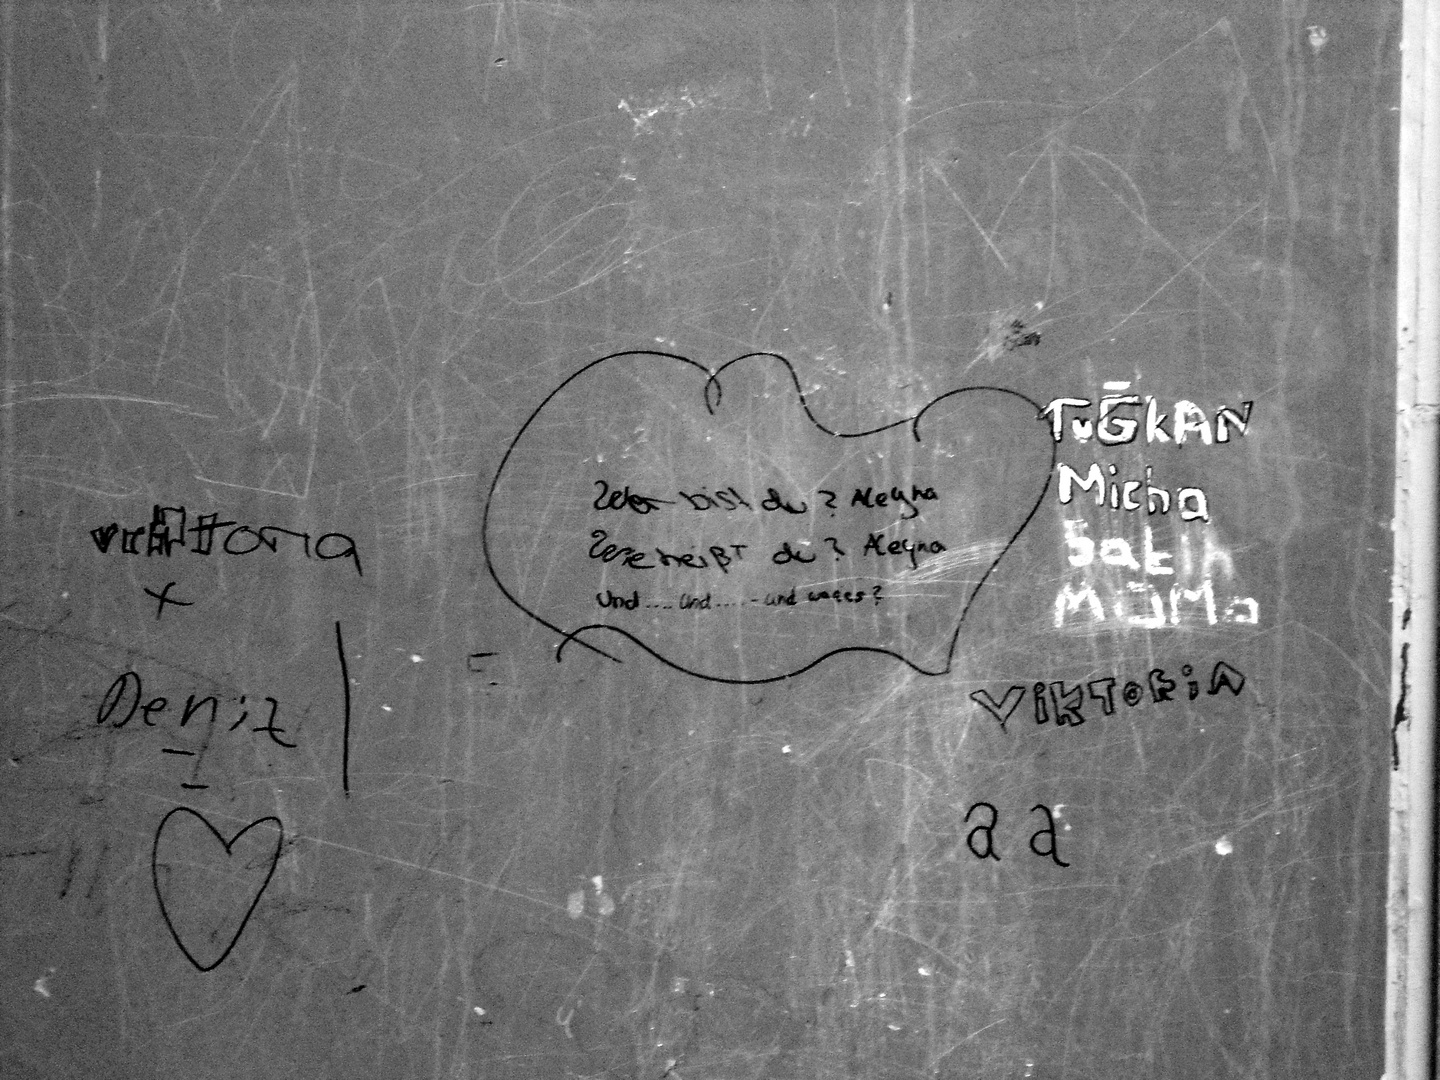 Viktoria
x
Deniz
=
Wer bist du? Aleyna
Wie heißt du? Aleyna
Und .... und ..... - und
TuĞkAN
Micha
ViKToRiA
a a